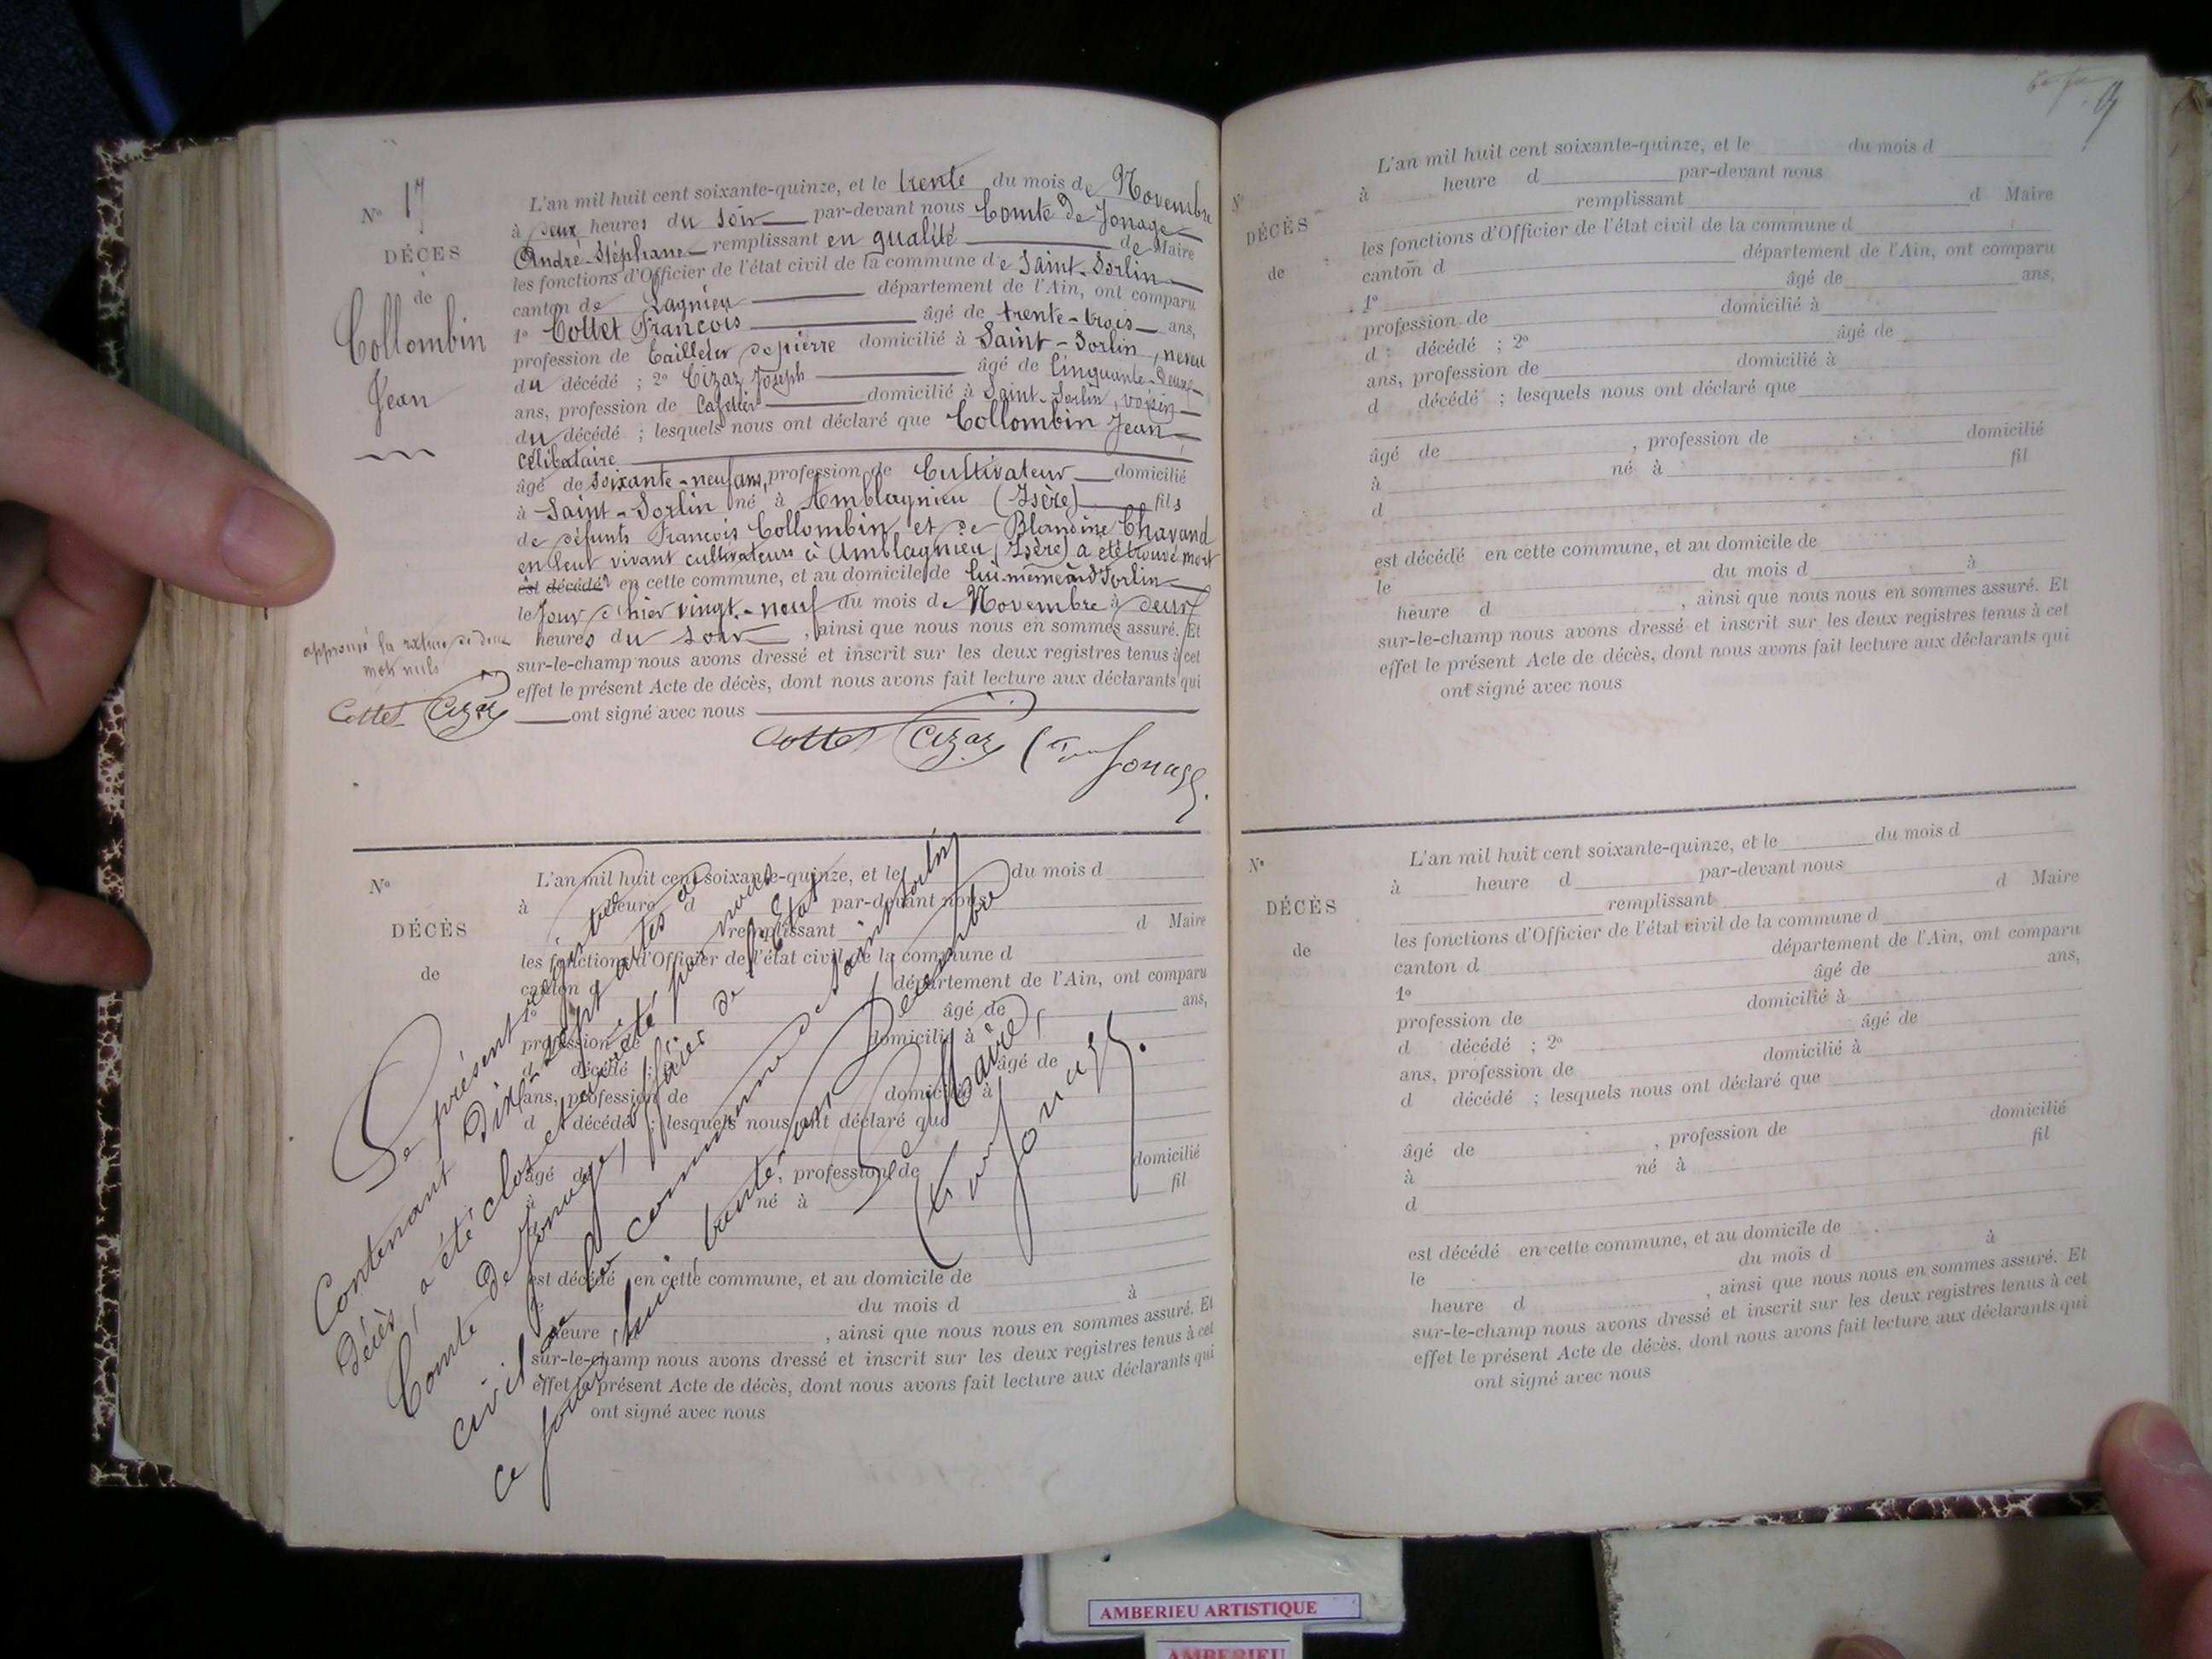 N° 17
DÉCÈS
de
Collombin
Jean
L'an mil huit cent soixante-quinze, et le trente du mois de Novembre
à deux heures du soir par-devant nous Comte de Jonage
André-Stéphane remplissant en qualité de Maire
les fonctions d'Officier de l'état civil de la commune de Saint-Sorlin
canton de Lagnieu département de l'Ain, ont comparu
1° Cottet François âgé de trente-trois ans,
profession de tailleur de pierre domicilié à Saint-Sorlin, neveu
du décédé ; 2° Cizaz Joseph âgé de cinquante-deux
ans, profession de Cafetier domicilié à Saint-Sorlin, voisin
du décédé ; lesquels nous ont déclaré que Collombin Jean
célibataire
âgé de soixante-neuf ans, profession de Cultivateur domicilié
à Saint-Sorlin né à Amblagnieu (Isère) fils
de défunts François Collombin et de Blandine Chavand
en leur vivant cultivateurs à Amblagnieu (Isère) a été trouvé mort
est décédé en cette commune, et au domicile de lui-même à St Sorlin
le Jour d'hier vingt-neuf du mois de Novembre à deux
heures du soir, ainsi que nous nous en sommes assuré. Et
sur-le-champ nous avons dressé et inscrit sur les deux registres tenus à cet
effet le présent Acte de décès, dont nous avons fait lecture aux déclarants qui
ont signé avec nous
approuvé la rature de deux
mots nuls
Cottet Cizaz
Cottet Cizaz Cte de Jonage.
N°
DÉCÈS
de
L'an mil huit cent soixante-quinze, et le du mois d
à heure d par-devant nous
remplissant d Maire
les fonctions d'Officier de l'état civil de la commune d
canton d département de l'Ain, ont comparu
1° âgé de ans,
profession de domicilié à
d décédé ; 2° âgé de
ans, profession de domicilié à
d décédé ; lesquels nous ont déclaré que
âgé de , profession de domicilié
à né à fil
d
est décédé en cette commune, et au domicile de
le du mois d à
heure d , ainsi que nous nous en sommes assuré. Et
sur-le-champ nous avons dressé et inscrit sur les deux registres tenus à cet
effet le présent Acte de décès, dont nous avons fait lecture aux déclarants qui
ont signé avec nous
Le présent registre
Contenant Dix-sept actes de
Décès, a été clos et arrêté par nous
Comte de Jonage, officier de l'Etat
civil de la commune de Saint Sorlin
ce jourd'hui trente-un Décembre
Le Maire,
Cte de Jonage.
N°
DÉCÈS
de
L'an mil huit cent soixante-quinze, et le du mois d
à heure d par-devant nous
remplissant d Maire
les fonctions d'Officier de l'état civil de la commune d
canton d département de l'Ain, ont comparu
1° âgé de ans,
profession de domicilié à
d décédé ; 2° âgé de
ans, profession de domicilié à
d décédé ; lesquels nous ont déclaré que
âgé de , profession de domicilié
à né à fil
d
est décédé en cette commune, et au domicile de
le du mois d à
heure d , ainsi que nous nous en sommes assuré. Et
sur-le-champ nous avons dressé et inscrit sur les deux registres tenus à cet
effet le présent Acte de décès, dont nous avons fait lecture aux déclarants qui
ont signé avec nous
N°
DÉCÈS
de
L'an mil huit cent soixante-quinze, et le du mois d
à heure d par-devant nous
remplissant d Maire
les fonctions d'Officier de l'état civil de la commune d
canton d département de l'Ain, ont comparu
1° âgé de ans,
profession de domicilié à
d décédé ; 2° âgé de
ans, profession de domicilié à
d décédé ; lesquels nous ont déclaré que
âgé de , profession de domicilié
à né à fil
d
est décédé en cette commune, et au domicile de
le du mois d à
heure d , ainsi que nous nous en sommes assuré. Et
sur-le-champ nous avons dressé et inscrit sur les deux registres tenus à cet
effet le présent Acte de décès, dont nous avons fait lecture aux déclarants qui
ont signé avec nous
AMBERIEU ARTISTIQUE
AMBERIEU